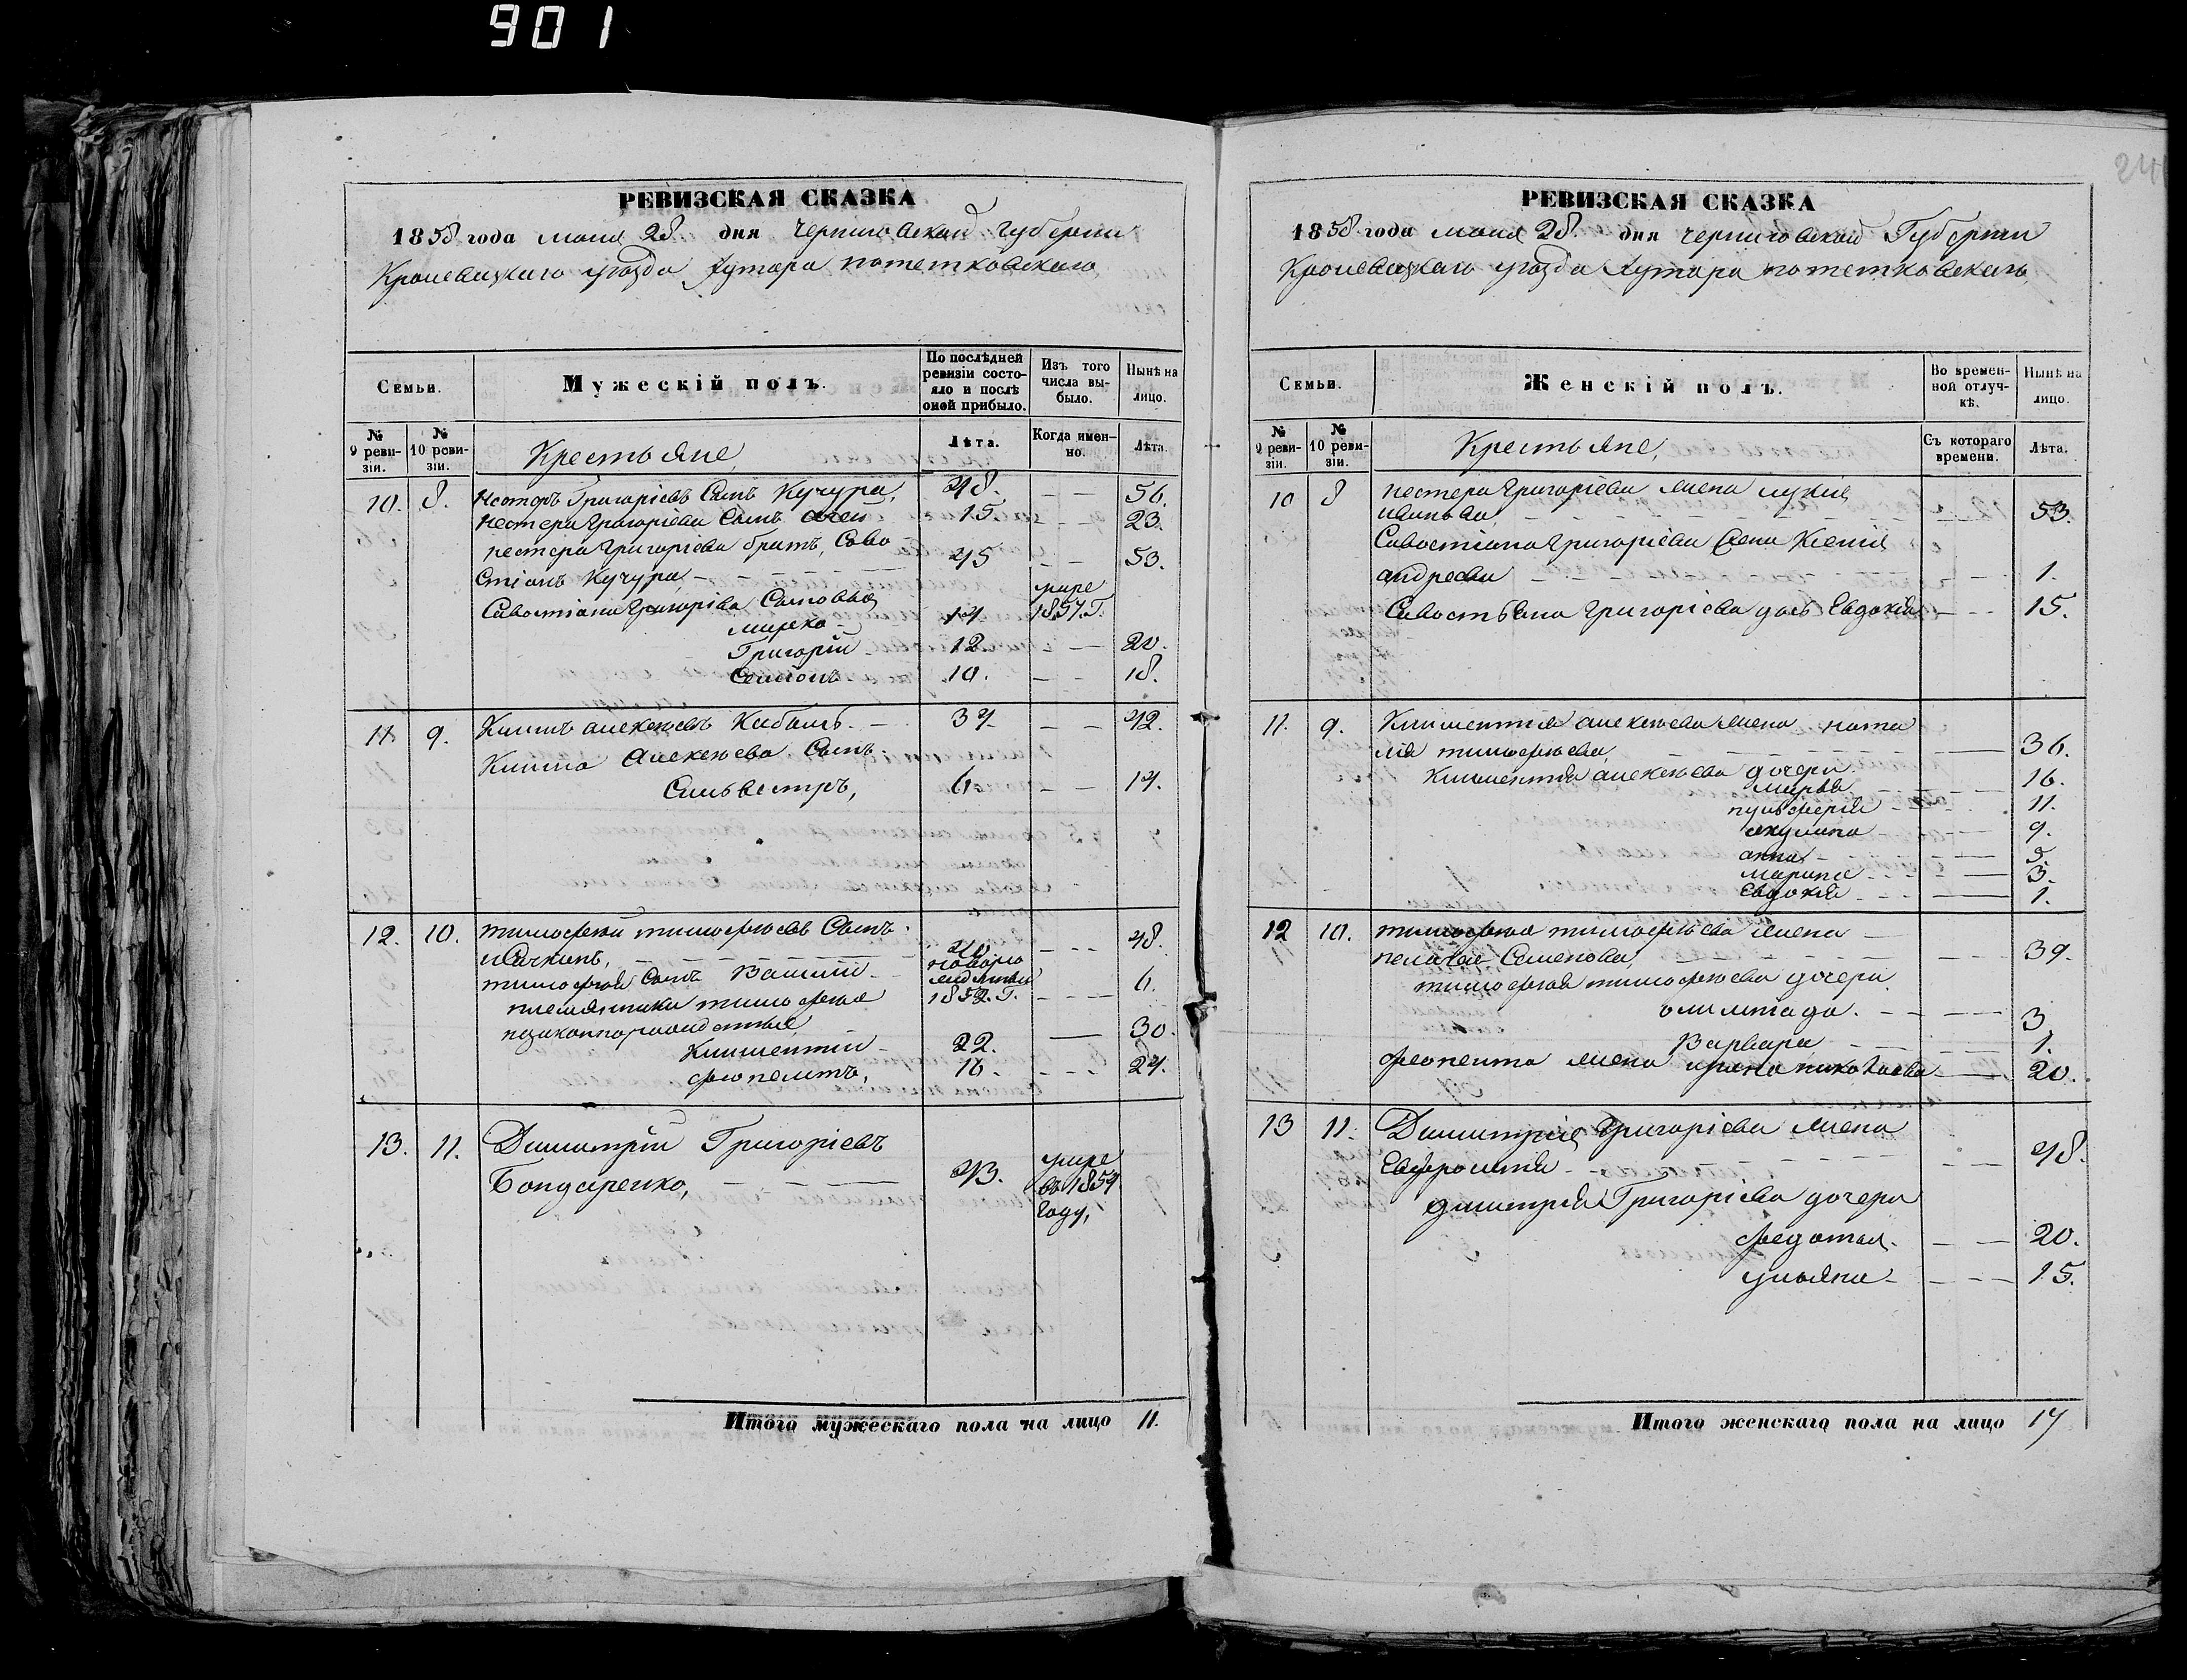 901
24
РЕВИЗСКАЯ СКАЗКА
1858 года маия 28 дня Черниговской Губернии
Кролевецкаго уѣзда Хутора потетковскаго
Семьи.
Мужескій полъ.
По послѣдней ревизіи состояло и послѣ оной прибыло.
Изъ того числа выбыло.
Нынѣ на лицо.
№ 9 ревизіи.
№ 10 ревизіи.
Крестьяне,
Лѣта.
Когда именно.
Лѣта.
10. 8. Несторъ Григоріевъ Сынъ Кучура, 48. — — 56.
Нестера Григоріева Сынъ 15. — — 23.
нестера Григоріева братъ, Саво
стіанъ Кучура, — — 45 — — 53.
Савостіана Григоріева Сыновья
Марко — 14 умре 1857. Г.
Григорій — 12. — — 20.
Семіонъ — 10. — — 18.
11. 9. Климъ алексѣевъ Кабанъ. — 34. — — 42.
Клима Алексѣева Сынъ
Сильвестръ, 6. — — 14.
12. 10. тимофѣй тимофѣевъ Сынъ
40 — — — 48.
тимофѣя Сынъ Василій — новорожденный 1852. Г. — — — 6.
племянники тимофѣя
незаконнорожденные
Климентій — 22. — 30.
16. — — — 24.
13. 11. Димитрій Григоріевъ
Бондаренко, — — — 43. умре въ 1854 году,
Итого мужескаго пола на лицо 11.
РЕВИЗСКАЯ СКАЗКА
1858 года маия 28. дня черниговской Губернии
Кролевецкаго уѣзда Хутора потетковскаго
Семьи.
Женскій полъ.
Во временной отлучкѣ.
Нынѣ на лицо.
№ 9 ревизіи.
№ 10 ревизіи.
Крестьяне,
Съ котораго времени.
Лѣта.
10 8 нестера Григоріева жена
иванова, — — 53.
Савостіана Григоріева жена Ксенія
андреева — — — 1.
Савостьяна Григоріева дочь Евдокія — — 15.
11. 9. Климентія алексѣева жена ната
лія тимофѣева, — — 36.
Климентія алексѣева дочери
марья — — 16.
пульхерія — — 11.
акулина — — 9.
анна — — 5.
марина — — 3.
Евдокія — — 1.
12 10. тимофѣя тимофѣева жена —
пелагея Семенова, — — 39.
тимофѣя тимофѣева дочери
олимпіада. — — 3
Варвара — — 1.
жена ирина николаева — — 20.
13 11. Димитрія Григоріева жена
Евфросинія — — 48.
димитрія Григоріева дочери
федотья. — — 20.
ульяна — — 15.
Итого женскаго пола на лицо 14